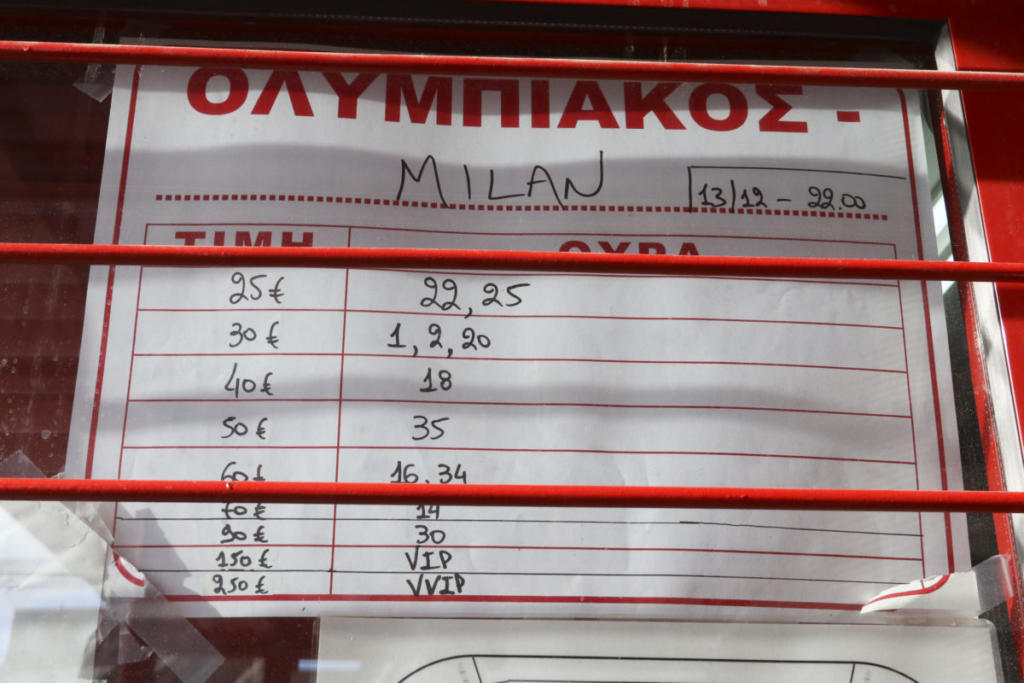 ΟΛΥΜΠΙΑΚΟΣ -
MILAN 13/12 - 22.00
ΤΙΜΗ ΘΥΡΑ
25€ 22, 25
30€ 1, 2, 20
40€ 18
50€ 35
60€ 16. 34
70€ 14
90€ 30
150€ VIP
250€ VVIP